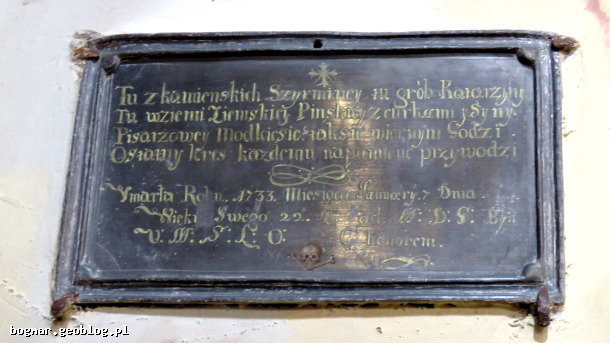 Tu z kamienskich Szyrminey grób
Tu w ziemi Ziemskiey Pinskiey z corkami y Syny
Pisarzowey Modlcie sie wiernym Godzi
Ostatny kres kazdemu na pamienc przywodzi
Vmarła Roku 1733. Miesiąca 7 Dnia
Wieki Swego 29. M: D: S:
V: M: S: L: O: Honorem.
bognar.geoblog.pl